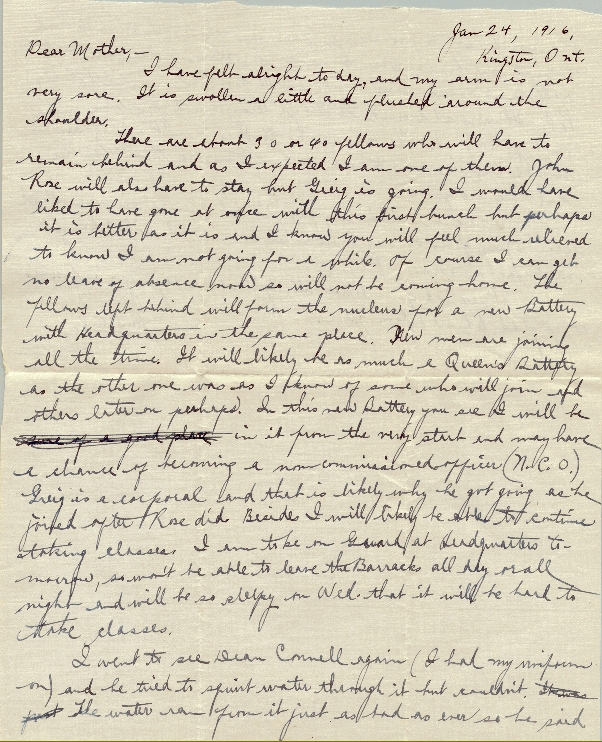 Jan 24, 1916,
Kingston, Ont.
Dear Mother,—
I have felt alright to day, and my arm is not
very sore. It is swollen a little and flushed around the
shoulder.
There are about 30 or 40 fellows who will have to
remain behind and as I expected I am one of them. John
Rose will also have to stay but Greig is going. I would have
liked to have gone at once with this first bunch but perhaps
it is better as it is and I know you will feel much relieved
to know I am not going for a while. Of course I can get
no leave of absence now so will not be coming home. The
fellows left behind will form the nucleus for a new Battery
with Headquarters in the same place. New men are joining
all the time. It will likely be as much a Queen's Battery
as the other one was as I know of some who will join and
others later on perhaps. In this new Battery you see I will be
sure of a good place in it from the very start and may have
a chance of becoming a non commissioned officer (N.C.O.)
Greig is a corporal and that is likely why he got going as he
joined after Rose did Besides I will likely be able to continue
taking classes. I am to be on Guard at Headquarters to-
morrow, so won't be able to leave the Barracks all day or all
night and will be so sleepy on Wed. that it will be hard to
take classes.
I went to see Dean Connell again (I had my uniform
on) and he tried to squirt water through it but couldn't. It was
just The water ran from it just as bad as ever so he said